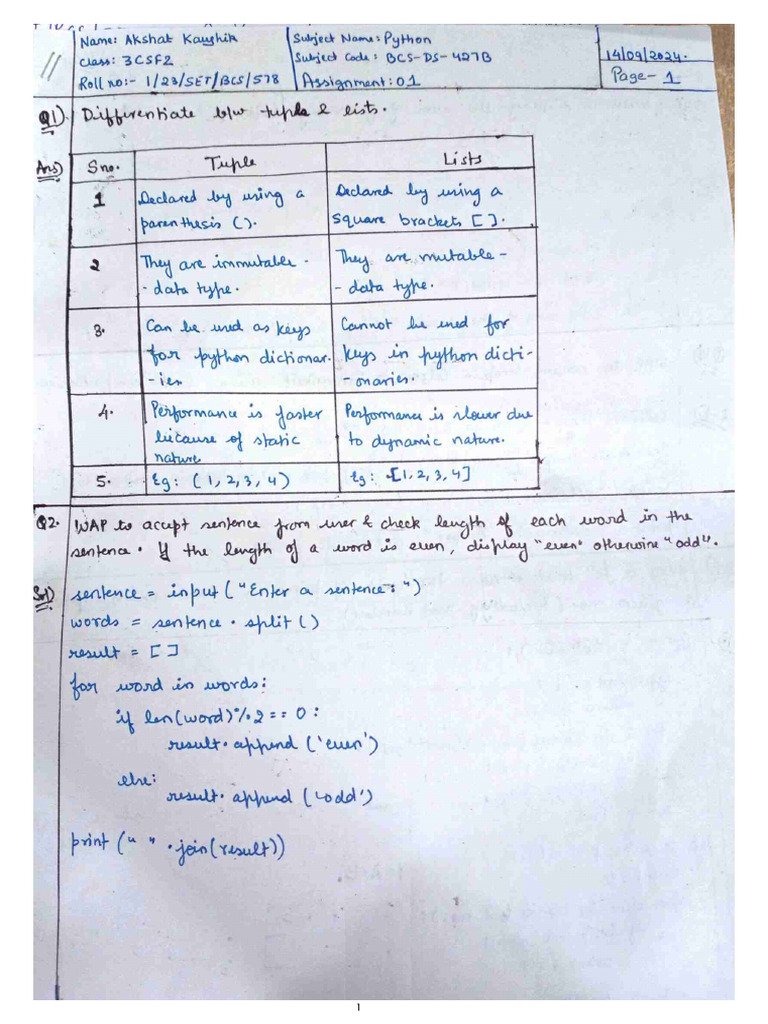 Name: Akshat Kaushik
Class: 3CSF2
Roll no:- 1/23/SET/BCS/578
Subject Name: Python
Subject Code: BCS-DS-427B
Assignment: 01
14/09/2024.
Page- 1
Q1). Differentiate b/w tuple & lists.
Ans) Sno. Tuple Lists
1 Declared by using a parenthesis (). Declared by using a square brackets [ ].
2 They are immutable - - data type. They are mutable - - data type.
3. Can be used as keys for python dictionar. -ies. Cannot be used for keys in python dicti- -onaries.
4. Performance is faster because of static nature. Performance is slower due to dynamic nature.
5. Eg: (1, 2, 3, 4) Eg: [1, 2, 3, 4]
Q2. WAP to accept sentence from user & check length of each word in the
sentence. If the length of a word is even, display "even" otherwise "odd".
Sol) sentence = input ("Enter a sentence: ")
words = sentence.split()
result = [ ]
for word in words:
if len(word)%2 == 0:
result.append ('even')
else:
result.append ('odd')
print (" ".join(result))
1